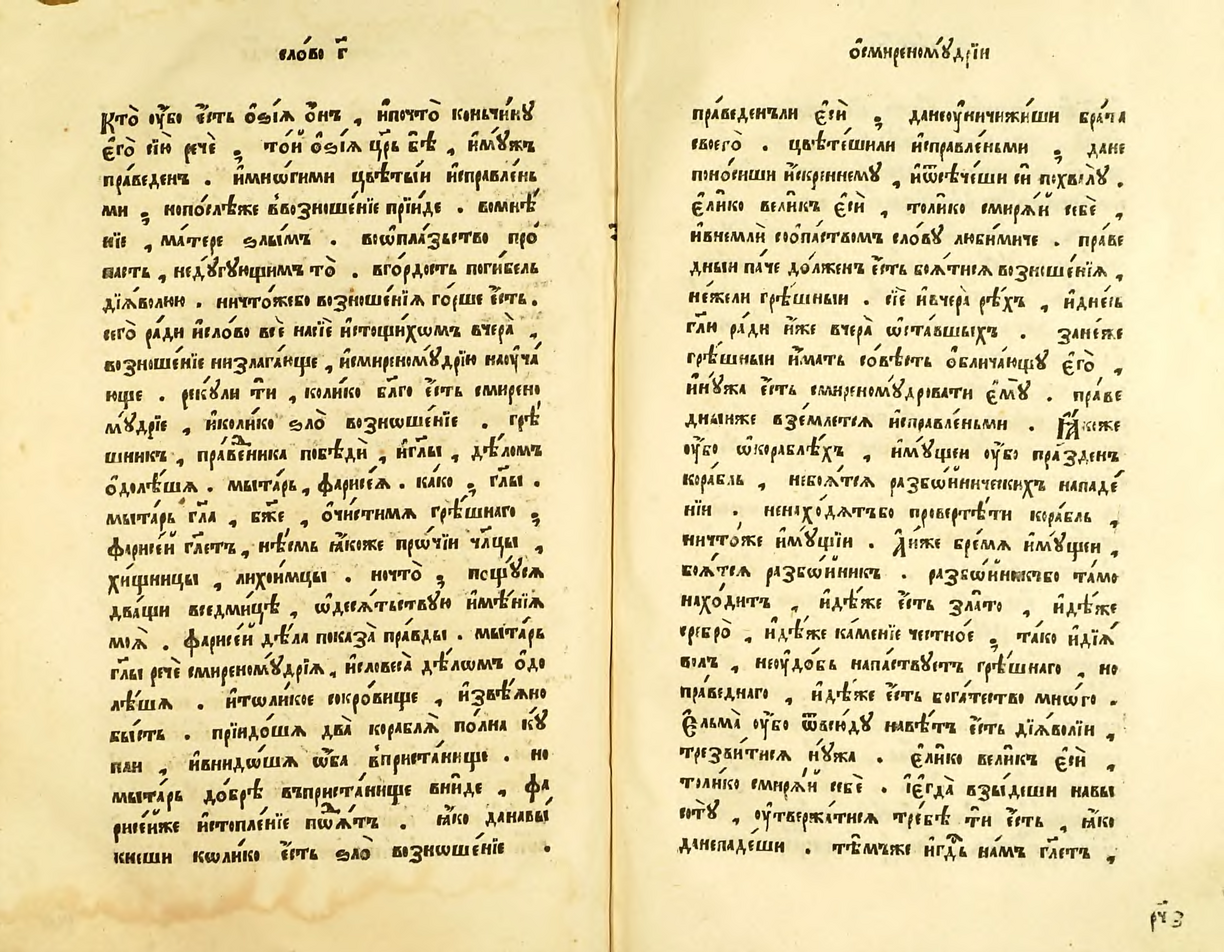 сло́во г҃
Кто̀ ᲂу҆́бо є҆́сть ѻ҆ѕі́ѧ ѻ҆́нъ , и҆почто̀ коньчи́нꙋ
є҆го̀ сїю̀ речѐ ; то́и ѻ҆ѕі́ѧ цр҃ь бѣ̀ , и҆мꙋ́жъ
пра́веденъ . и҆мно́гими цвѣты̀и и҆справле́нь
ми ; нопослѣ́же ввозноше́нїе прїи́де . вомнѣ́
нїе , ма́тере ѕлы́мъ . восѡпла́зьство про́
пасть , недꙋ́гꙋющимъ то̀ . вго́рдость поги́бель
дїѧ́волню . ничто́жебо возноше́нїѧ го́рше є҆́сть .
сего̀ ра́ди и҆сло́во всѐ насїѐ и҆стощи́хѡмъ вчера̀ ,
возноше́нїе низлага́юще , и҆смиреномꙋ́дрїю наᲂуча́
юще . рекꙋ́ли ти , коли́ко бл҃го є҆́сть смирено
мꙋ́дрїе , и҆коли́ко ѕло̀ возноше́нїе . грѣ́
шникъ , пра́веⷣника побѣдѝ , и҆гл҃ы , дѣ́ломъ
ѻ҆долѣ́шѧ . мыта́рь , фарисе́ѧ . ка́ко ; гл҃ы .
мыта́рь гл҃а , бж҃е , ѻ҆чи́стимѧ грѣ́шнаго ;
фарисе́й гл҃етъ , нѣ́смь ꙗ҆́коже про́чїи чл҃цы ,
хи́щницы , лихои́мцы . ночто̀ ; пощꙋ́сѧ
два́щи вседми́цѣ , ѡ҆десѧ́тьствꙋю и҆мѣ́нїѧ
моѧ̀ . фарисе́й дѣ́ла показа̀ пра́вды . мыта́рь
гл҃ы речѐ смиреномꙋ́дрїѧ , и҆словеса̀ дѣ́лѡмъ ѻ҆до
лѣ́шѧ . и҆то́ликое сокро́вище , и҆звѣ́ѧно
бы́сть . прїидо́шѧ два̀ кораблѧ̀ по́лна кꙋ́
пли , и҆внидо́шѧ ѻ҆́ба в̾приста́нище . но
мыта́рь до́брѣ въприста́нище вни́де , фа
рисе́иже и҆стопле́нїе поⷣѧ́тъ . ꙗ҆́ко данавы́
кнеши коли́ко є҆́сть ѕло̀ возноше́нїе .
ѻ҆смиреномꙋ́дрїи
пра́веденъли є҆сѝ ; данеᲂу҆ничижи́ши бра́та
своего̀ . цвѣте́шили и҆справле́ньми ; дане
поно́сиши и҆́скреннемꙋ , и҆ѿсѣче́ши си похвалꙋ̀ .
є҆ли́ко вели́къ є҆сѝ , толи́ко смирѧ́й себѐ ,
и҆внемлѝ соѻпа́ствомъ сло́вꙋ люби́миче . пра́ве
дныи па́че до́лженъ є҆́сть боѧ́тисѧ возноше́нїѧ ,
не́жели грѣ́шныи . сїѐ и҆вчера̀ рѣ́хъ , и҆дне́сь
гл҃ю ра́ди и҆́же вчера̀ ѡ҆ста́вшыхъ . зане́же
грѣ́шныи и҆́мать со́вѣсть ѻ҆блича́ющꙋ є҆го̀ ,
и҆нꙋ́жа є҆́сть смиреномꙋ́дровати є҆мꙋ̀ . пра́ве
дныиже взе́млетсѧ и҆справле́ньми . Ꙗ҆́коже
ᲂу҆́бо ѡ҆корабле́хъ , и҆мꙋ́щеи ᲂу҆́бо пра́зденъ
кора́бль , небоѧ́тсѧ разбо́йническихъ нападе́
нїи . ненахо́дѧтъбо проверте́ти кора́бль ,
ничто́же и҆мꙋ́щїи . А҆и҆́же бре́мѧ и҆мꙋ́щеи ,
боѧ́тсѧ разбо́йникъ . разбо́йникъбо та́мо
нахо́дитъ , и҆дѣ́же є҆́сть зла́то , и҆дѣ́же
сребро̀ , и҆дѣ́же ка́менїе честно́е ; та́ко и҆дїѧ́
волъ , неᲂудо́бь напа́ствꙋетъ грѣ́шнаго , но
пра́веднаго , и҆дѣ́же є҆́сть бога́тество мно́го .
Є҆льма̀ ᲂу҆́бо ѿвсю́дꙋ навѣ́тъ є҆́сть дїѧ́волїи ,
трезви́тисѧ нꙋ́жа . є҆ли́ко вели́къ є҆сѝ ,
толи́ко смирѧ́й себѐ . і҆є҆гда̀ взы́деши навы
сотꙋ̀ , ᲂу҆твержа́тисѧ тре́бѣ ти є҆́сть , ꙗ҆́ко
данепаде́ши . тѣ́мъже и҆гдⷭ҇ь на́мъ гл҃етъ ,
рч҃з